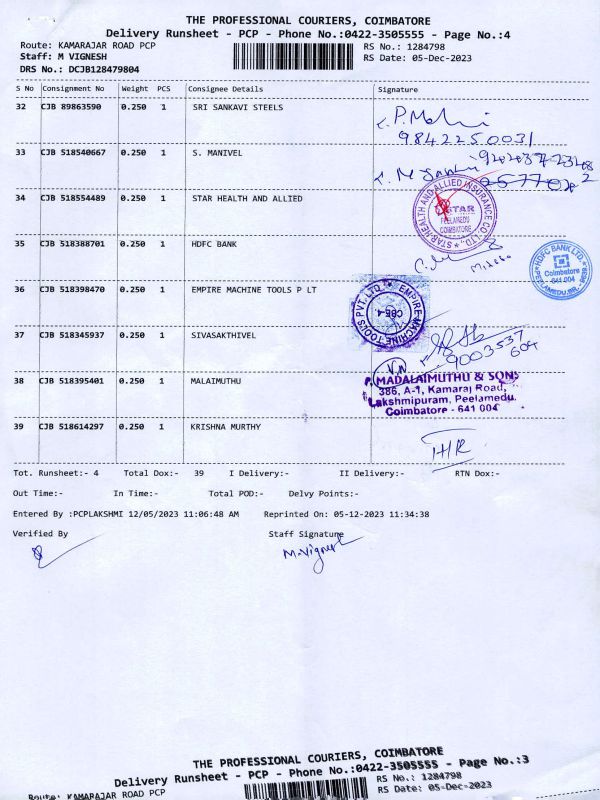 THE PROFESSIONAL COURIERS, COIMBATORE
Delivery Runsheet - PCP - Phone No.:0422-3505555 - Page No.:4
Route: KAMARAJAR ROAD PCP RS No.: 1284798
Staff: M VIGNESH RS Date: 05-Dec-2023
DRS No.: DCJB128479804
S No Consignment No Weight PCS Consignee Details Signature
32 CJB 89863590 0.250 1 SRI SANKAVI STEELS
9842250031
33 CJB 518540667 0.250 1 S. MANIVEL
34 CJB 518554489 0.250 1 STAR HEALTH AND ALLIED
STAR HEALTH AND ALLIED INSURANCE CO. LTD.
STAR
PEELAMEDU
COIMBATORE
35 CJB 518388701 0.250 1 HDFC BANK
HDFC BANK LTD.
Coimbatore
641 004
36 CJB 518398470 0.250 1 EMPIRE MACHINE TOOLS P LT
EMPIRE MACHINE TOOLS PVT. LTD.
CBE-4
37 CJB 518345937 0.250 1 SIVASAKTHIVEL
9003537
604
38 CJB 518395401 0.250 1 MALAIMUTHU
MADALAIMUTHU & SONS
386, A-1, Kamaraj Road,
Lakshmipuram, Peelamedu,
Coimbatore - 641 004
39 CJB 518614297 0.250 1 KRISHNA MURTHY
Tot. Runsheet:- 4 Total Dox:- 39 I Delivery:- II Delivery:- RTN Dox:-
Out Time:- In Time:- Total POD:- Delvy Points:-
Entered By :PCPLAKSHMI 12/05/2023 11:06:48 AM Reprinted On: 05-12-2023 11:34:38
Verified By Staff Signature
M.Vignesh
THE PROFESSIONAL COURIERS, COIMBATORE
Delivery Runsheet - PCP - Phone No.:0422-3505555 - Page No.:3
Route: KAMARAJAR ROAD PCP RS No.: 1284798
RS Date: 05-Dec-2023